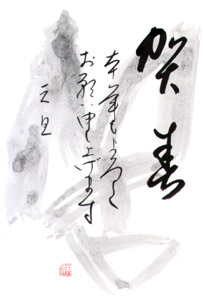 賀春
本年もよろしく
お願い申し上げます
元旦